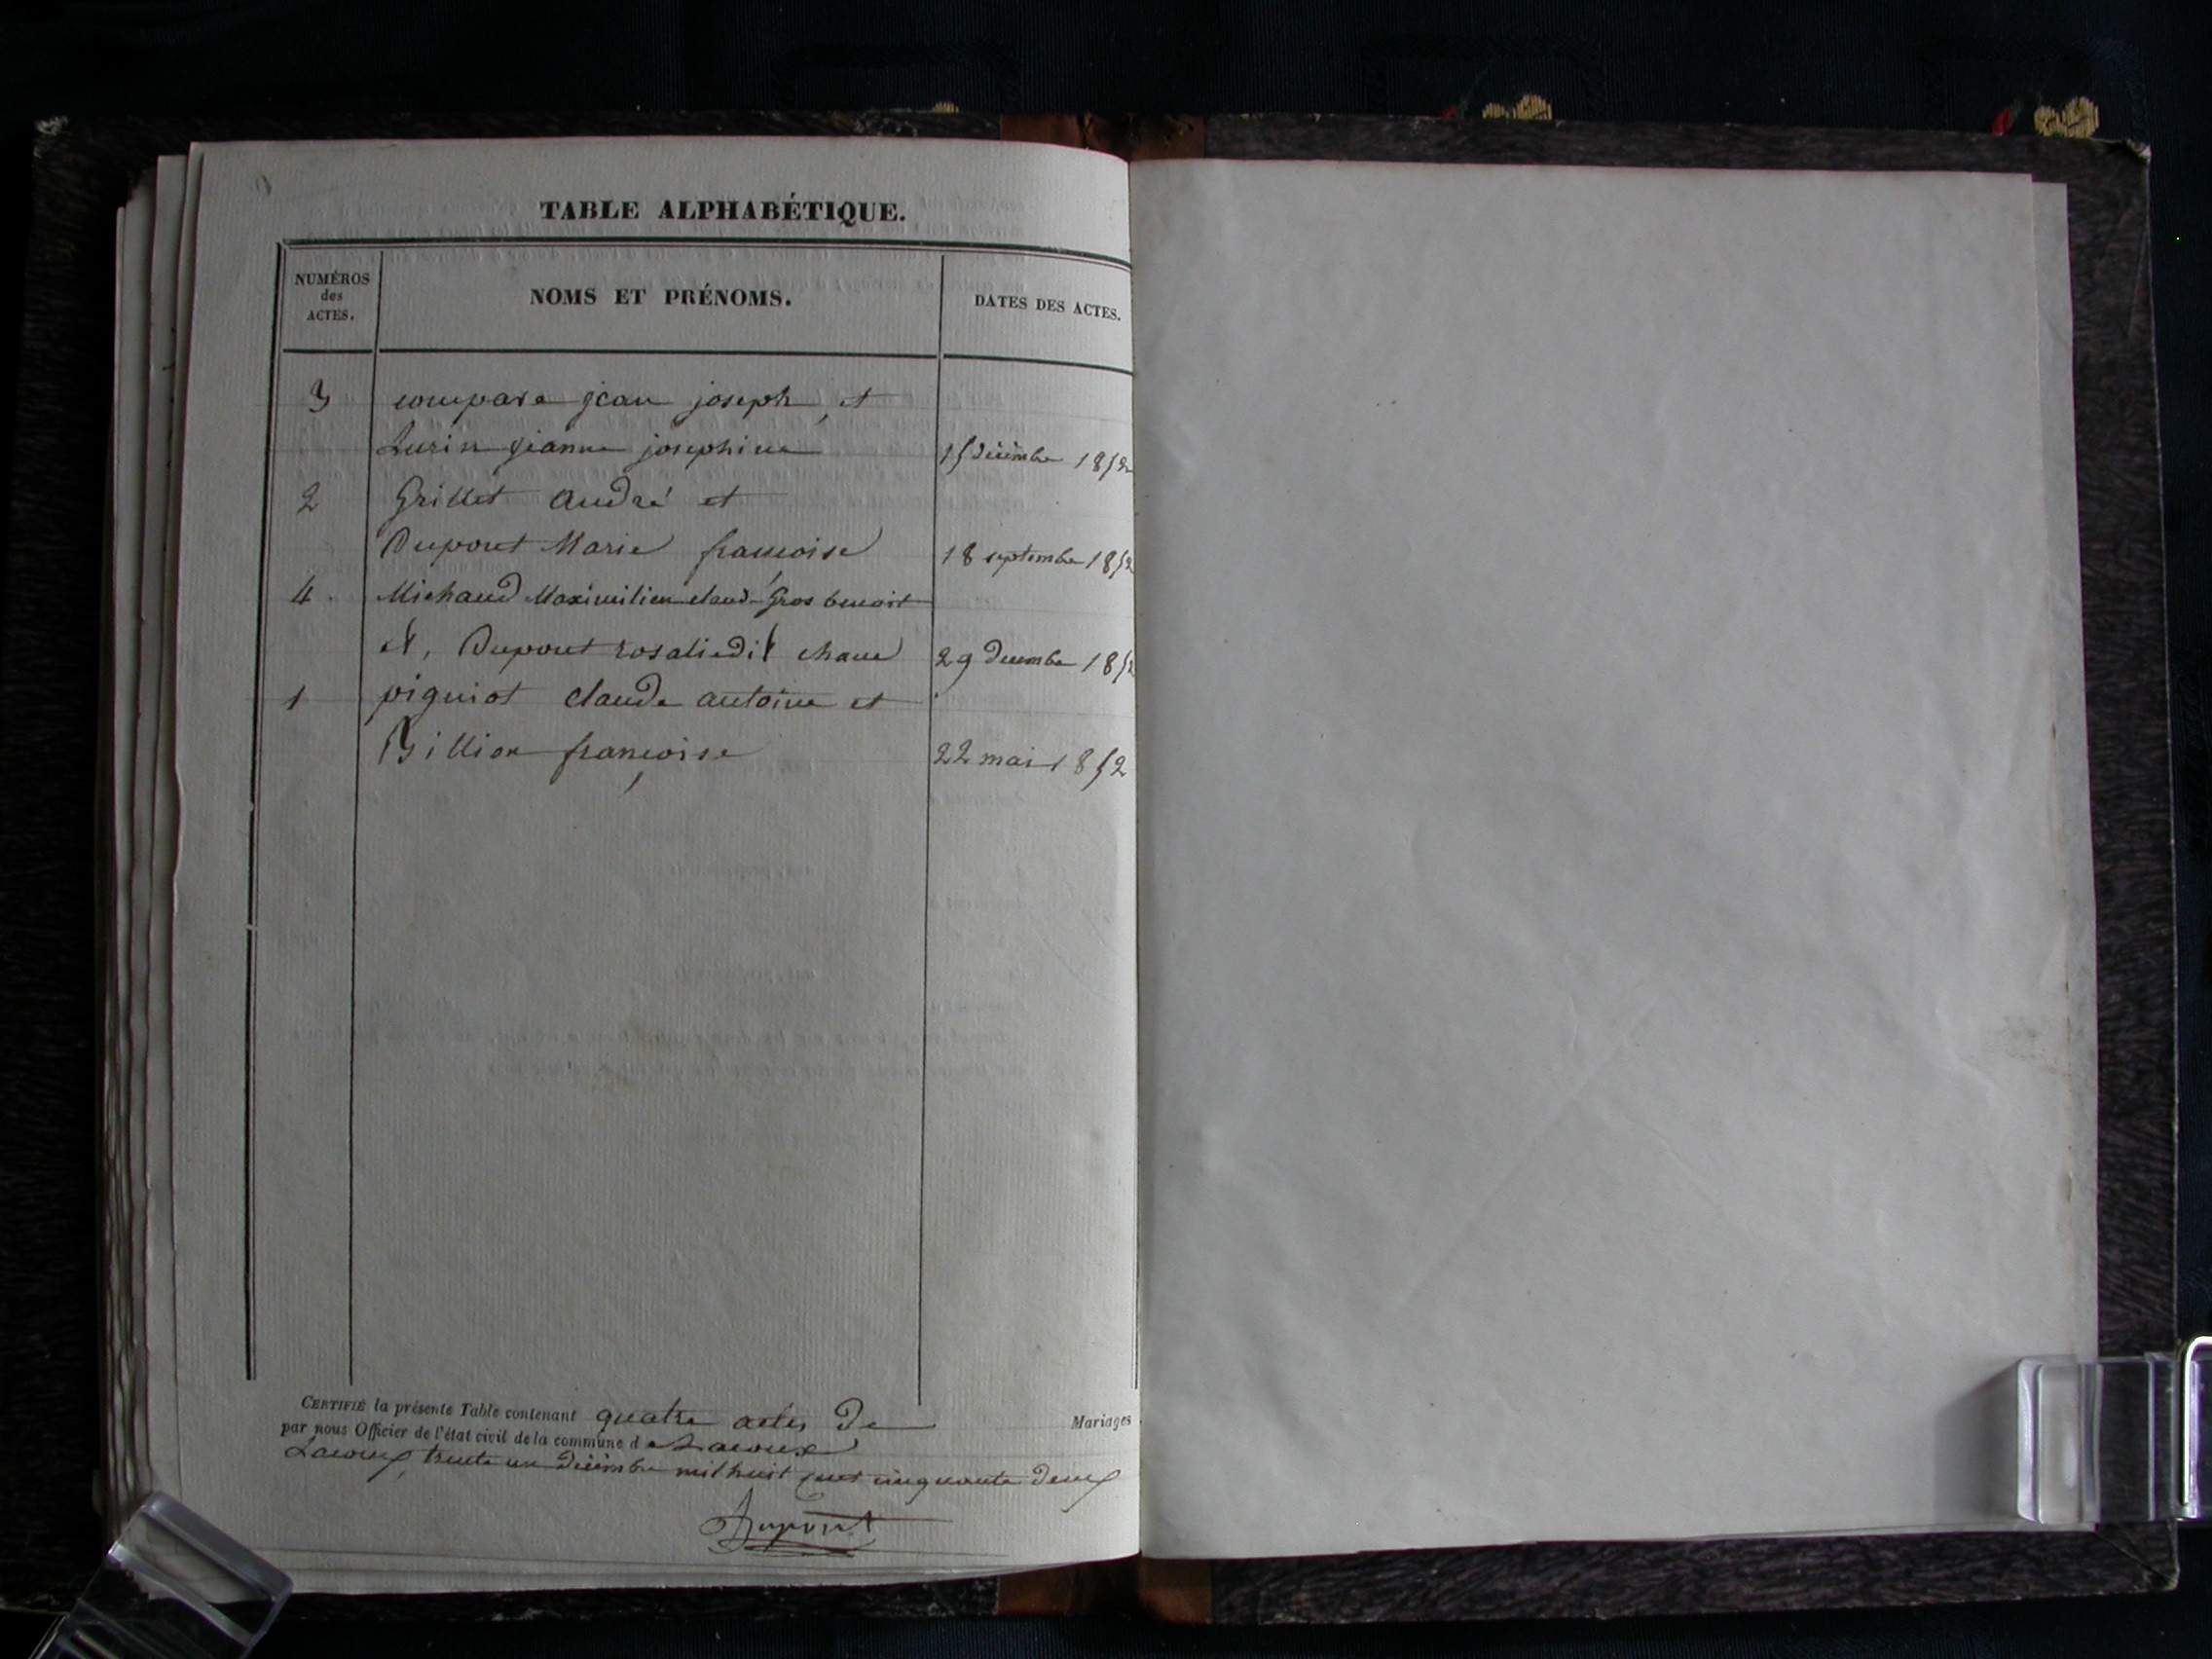 TABLE ALPHABÉTIQUE.
NUMÉROS
des
ACTES.
NOMS ET PRÉNOMS.
DATES DES ACTES.
3 compare jean joseph, et
Lurin jeanne josephine 15 décembre 1852
2 Grillet andré et
Dupont Marie françoise 18 septembre 1852
4. Michaud Maximilien claud Gros benoit
et, Dupont rosalie dit chane 29 decembre 1852
1 piguiot claude antoine et
Billion françoise 22 mai 1852
CERTIFIÉ la présente Table contenant quatre actes de Mariages
par nous Officier de l'état civil de la commune de Lacoux
Lacoux, trente un décembre mil huit cent cinquante deux
Dupont